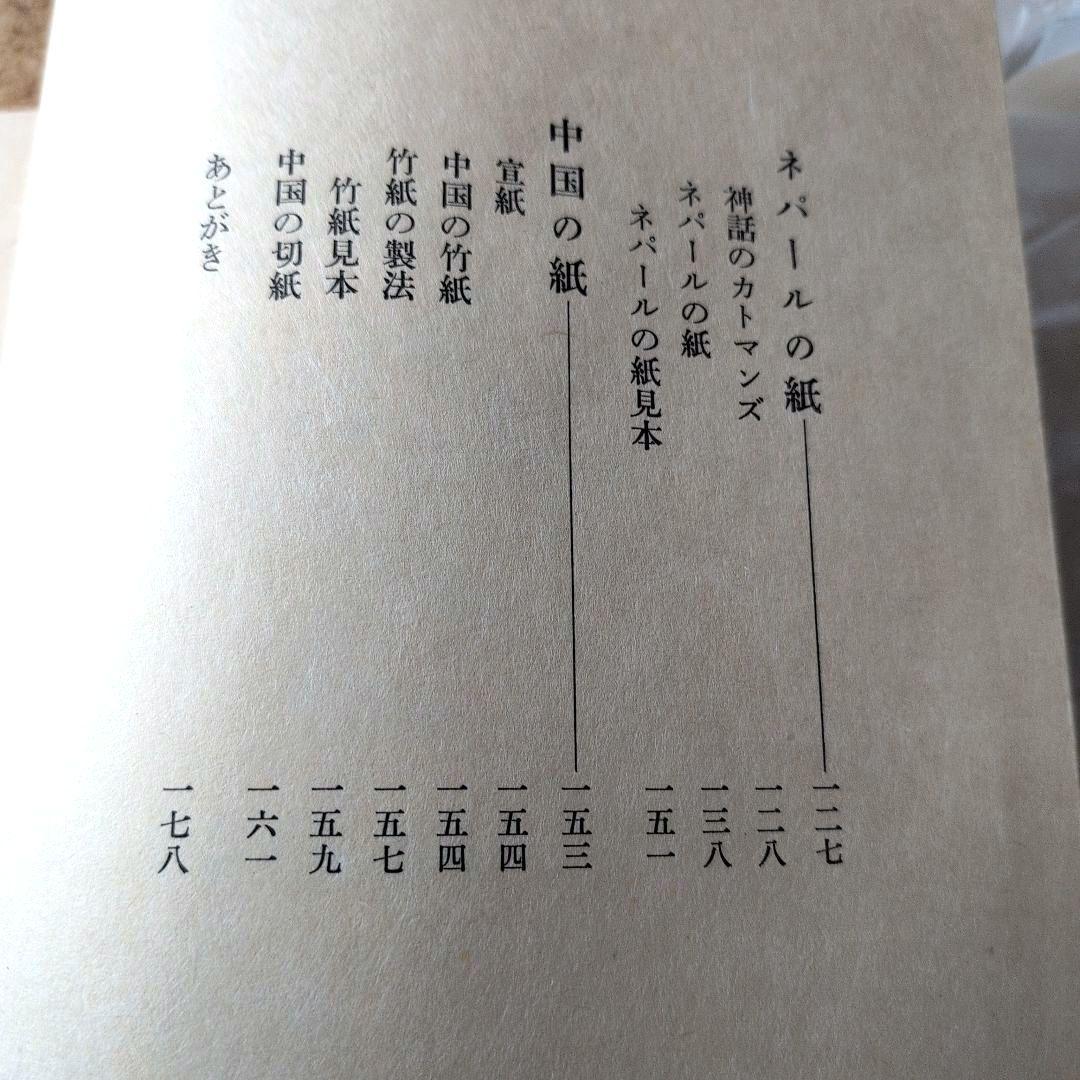 ネパールの紙 一二七
神話のカトマンズ 一二八
ネパールの紙 一三八
ネパールの紙見本 一五一
中国の紙 一五三
宣紙 一五四
中国の竹紙 一五四
竹紙の製法 一五七
竹紙見本 一五九
中国の切紙 一六一
あとがき 一七八